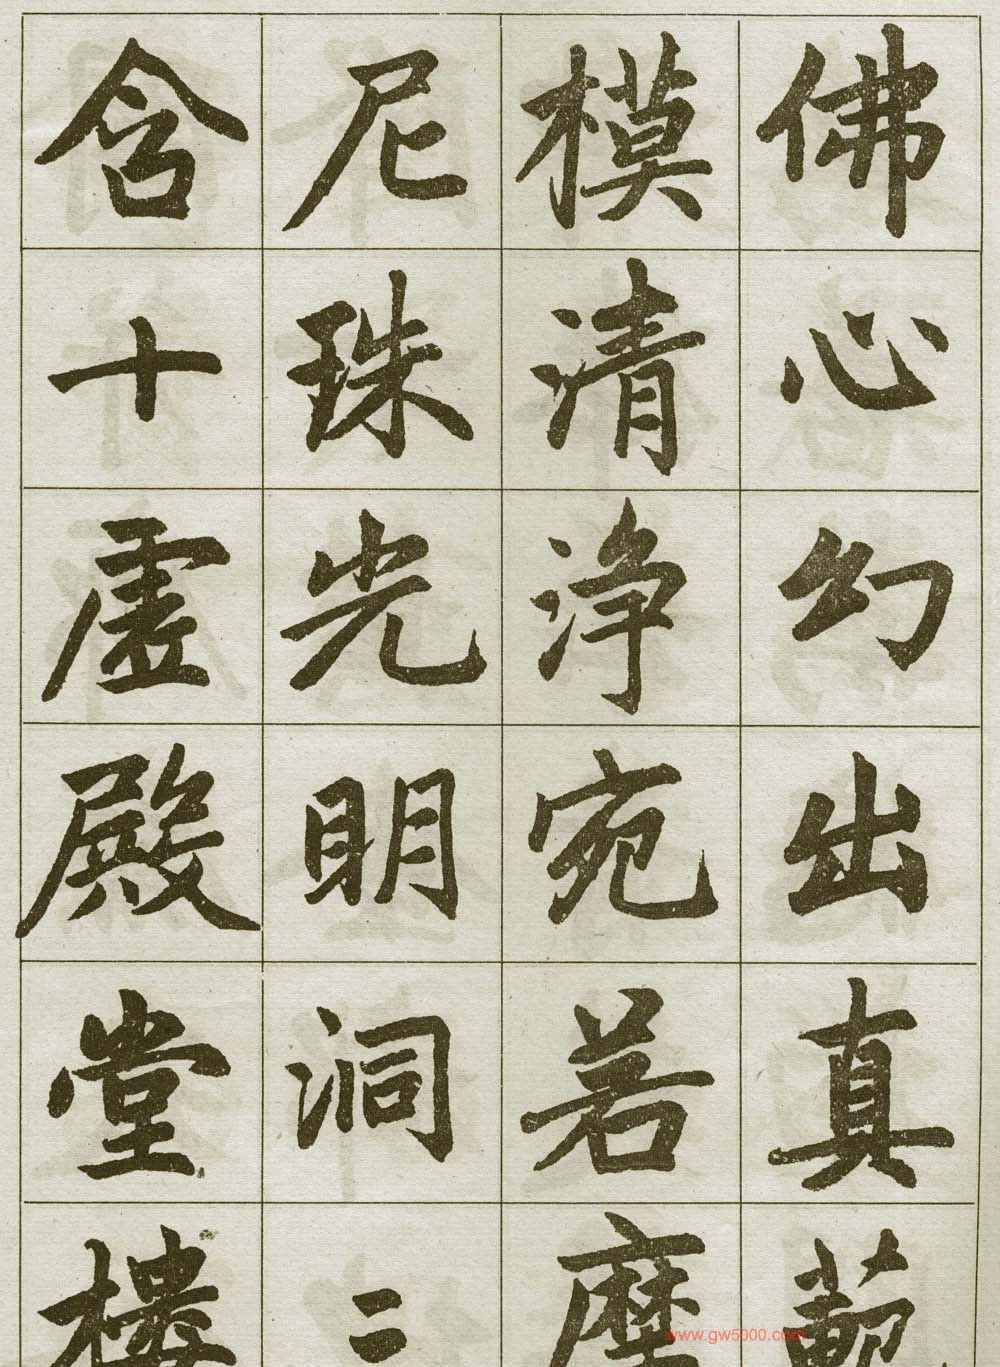 佛心幻出真範
模清淨宛若摩
尼珠光明洞二
含十虛殿堂樓
www.gw5000.com